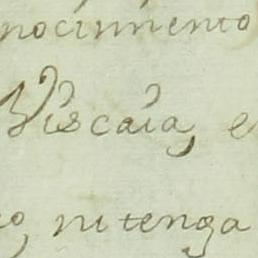 nocimiento
Viscaia, e
o, ni tenga